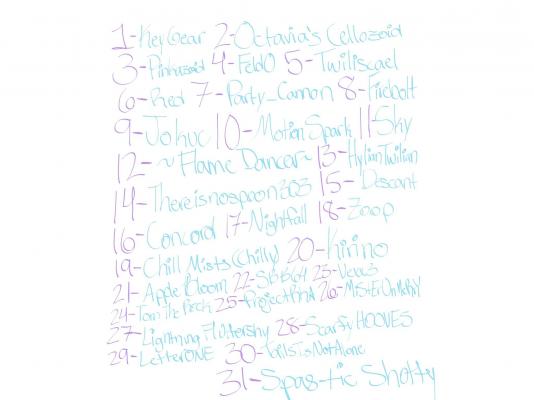 1-KeyGear 2-Octavia's Cellozoid
3-Pinhazoid 4-FeldO 5-Twiliscael
6-Red 7-Party_Cannon 8-Firebolt
9-Johuc 10-MotionSpark 11-Sky
12-~Flame Dancer~ 13-HylianTwilian
14-Thereisnospoon303 15-Descant
16-Concord 17-Nightfall 18-Zoop
19-Chill Mists (Chilly) 20-Kirino
21-Apple Bloom 22-SBB64 23-Vexx3
24-Tom The Rock 25-ProjectRnd 26-MiStErOnMoNkY
27-Lightning Fluttershy 28-Scarfy HOOVES
29-LetterONE 30-TailsIsNotAlone
31-Spas-tic Shotty